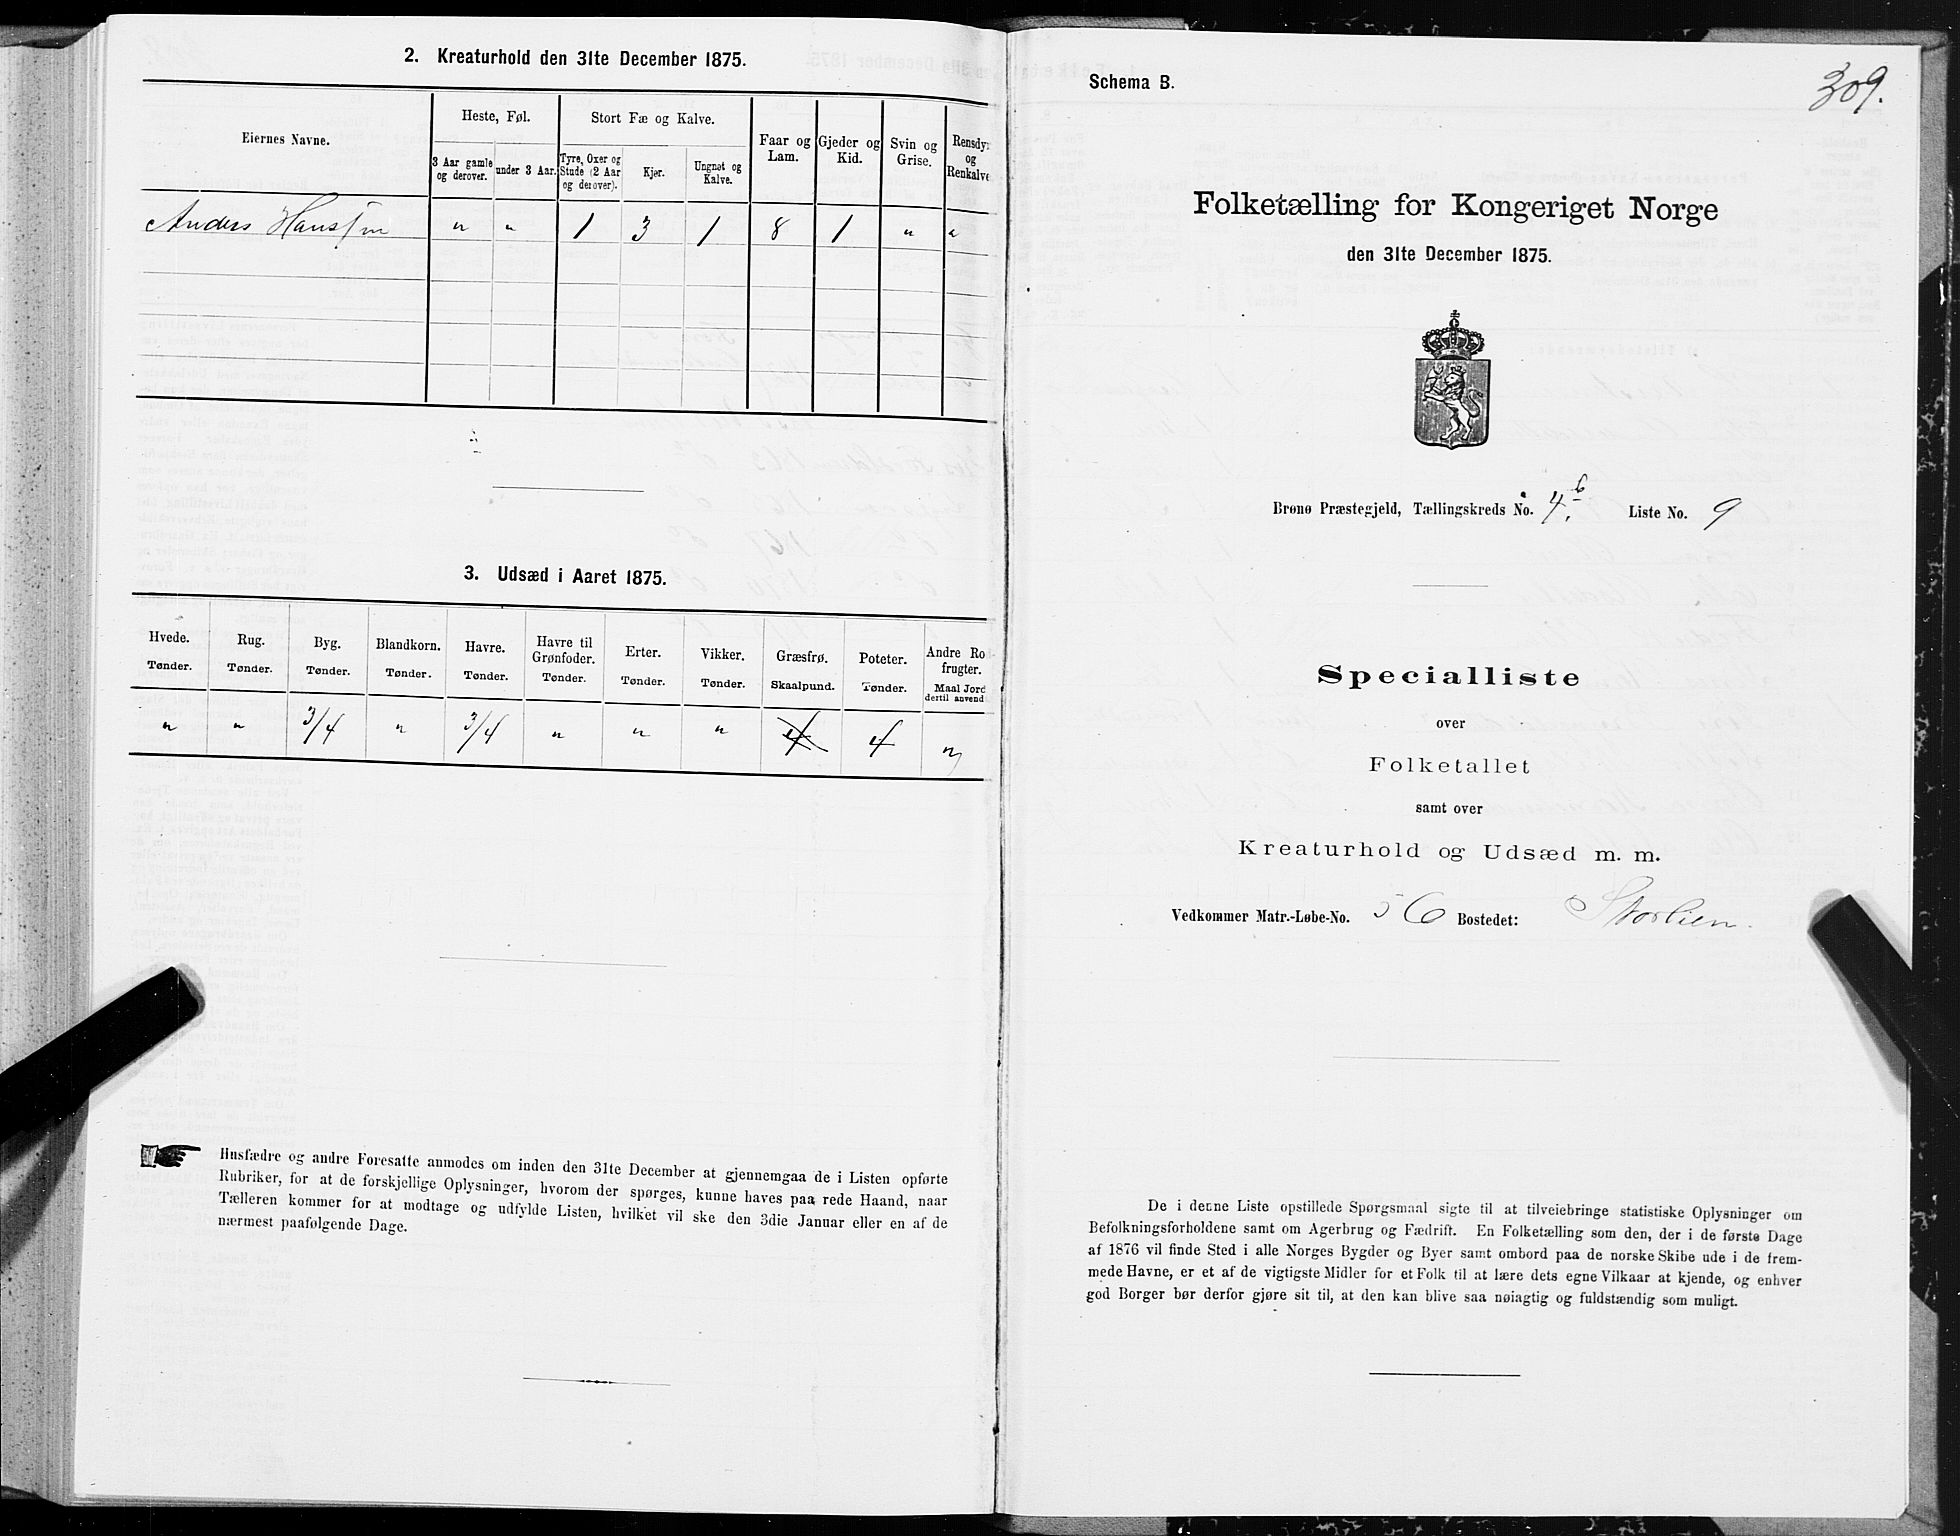 2. Kreaturhold den 31te December 1875.
Eiernes Navne.
Heste, Føl.
Stort Fæ og Kalve.
Faar og Lam.
Gjeder og Kid.
Svin og Grise.
Rensdyr og Renkalve
3 Aar gamle og derover.
under 3 Aar.
Tyre, Oxer og Stude (2 Aar og derover).
Kjør.
Ungnøt og Kalve.
Anders Hanssen " " 1 3 1 8 1 " "
3. Udsæd i Aaret 1875.
Hvede. Rug. Byg. Blandkorn. Havre. Havre til Grønfoder. Erter. Vikker. Græsfrø. Poteter. Andre Ro frugter.
Tønder. Tønder. Tønder. Tønder. Tønder. Tønder. Tønder. Tønder. Skaalpund. Tønder. Maal Jord dertil anvend
" " 3/4 " 3/4 " " " 4 4 "
Husfædre og andre Foresatte anmodes om inden den 31te December at gjennemgaa de i Listen opførte
Rubriker, for at de forskjellige Oplysninger, hvorom der spørges, kunne haves paa rede Haand, naar
Tælleren kommer for at modtage og udfylde Listen, hvilket vil ske den 3die Januar eller en af de
nærmest paafølgende Dage.
Schema B.
309.
Folketælling for Kongeriget Norge
den 31te December 1875.
Brønø Præstegjeld, Tællingskreds No. 4b. Liste No. 9
Specialliste
over
Folketallet
samt over
Kreaturhold og Udsæd m. m.
Vedkommer Matr.-Løbe-No. 56 Bostedet: Storlien.
De i denne Liste opstillede Spørgsmaal sigte til at tilveiebringe statistiske Oplysninger om
Befolkningsforholdene samt om Agerbrug og Fædrift. En Folketælling som den, der i de første Dage
af 1876 vil finde Sted i alle Norges Bygder og Byer samt ombord paa de norske Skibe ude i de frem-
mede Havne, er et af de vigtigste Midler for et Folk til at lære dets egne Vilkaar at kjende, og enhver
god Borger bør derfor gjøre sit til, at den kan blive saa nøiagtig og fuldstændig som muligt.